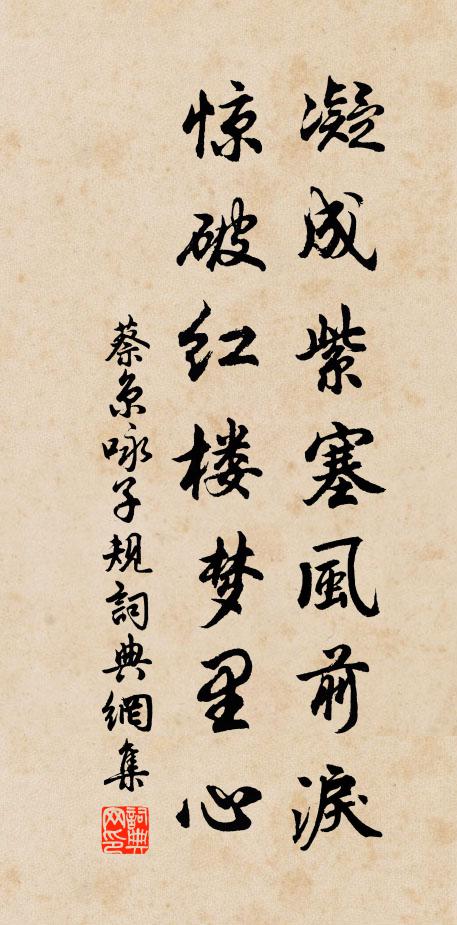 凝成紫塞風前淚
惊破红楼梦里心
蔡京咏子規詞典網集
詞典网印